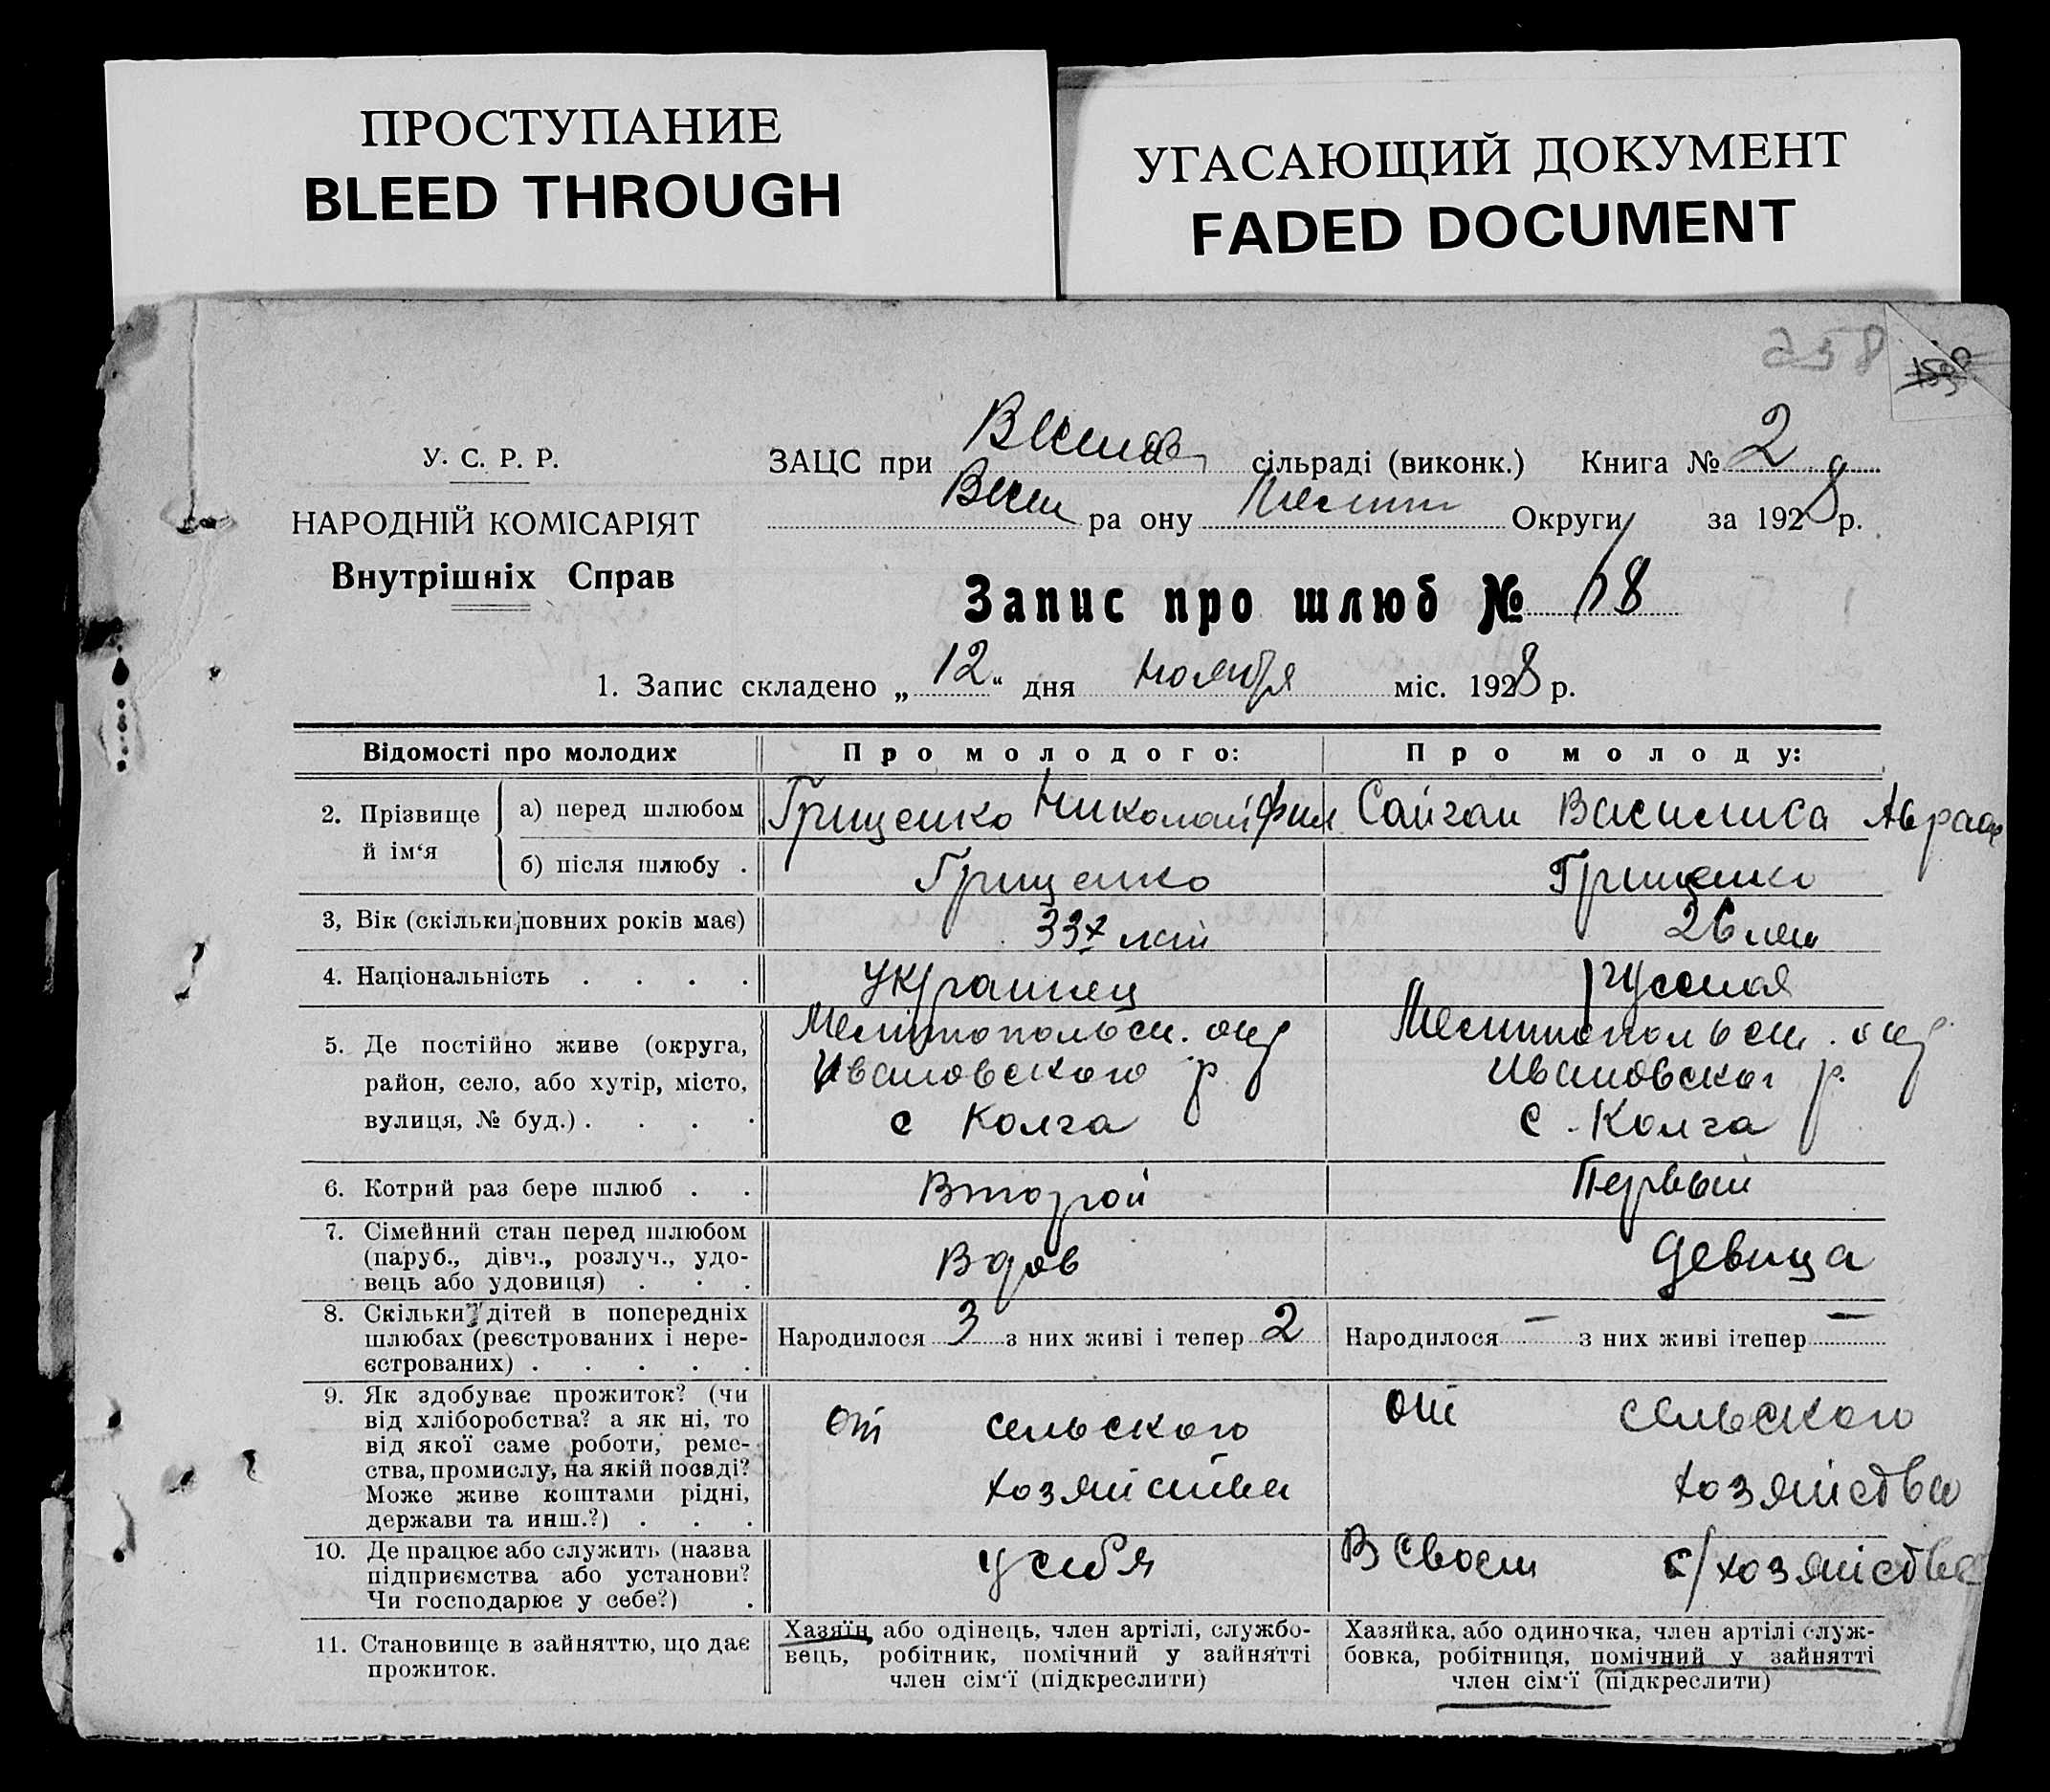 ПРОСТУПАНИЕ
BLEED THROUGH
УГАСАЮЩИЙ ДОКУМЕНТ
FADED DOCUMENT
258
У. С. Р. Р.
НАРОДНІЙ КОМІСАРІЯТ
Внутрішніх Справ
ЗАЦС при сільраді (виконк.) Книга № 2
ра ону Мелит Округи за 1928 р.
Запис про шлюб № 18
1. Запис складено „ 12 “ дня ноября міс. 1928 р.
Відомості про молодих
Про молодого:
Про молоду:
2. Прізвище й ім‘я
а) перед шлюбом
Грищенко Николай Фил
Сайган Василиса Авраам
б) після шлюбу .
Грищенко
Грищенко
3, Вік (скільки повних років має)
33 лет
26 лет
4. Національність . . . .
Украинец
русская
5. Де постійно живе (округа,
район, село, або хутір, місто,
вулиця, № буд.) . . . .
Мелитопольск. окр
Ивановского р.
с Колга
Мелитопольск. окр
Ивановског р.
с. Колга
6. Котрий раз бере шлюб . .
Второй
Первый
7. Сімейний стан перед шлюбом
(паруб., дівч., розлуч., удо-
вець або удовиця) . . .
Вдов
девица
8. Скільки дітей в попередніх
шлюбах (реєстрованих і нере-
єстрованих) . . . . .
Народилося 3 з них живі і тепер 2
Народилося — з них живі ітепер —
9. Як здобуває прожиток? (чи
від хліборобства? а як ні, то
від якої саме роботи, реме-
ства, промислу, на якій посаді?
Може живе коштами рідні,
держави та инш.?) . . .
от сельского
хозяйства
от сельского
хозяйства
10. Де працює або служить (назва
підприємства або установи?
Чи господарює у себе?) .
у себя
В своем с/хозяйстве
11. Становище в зайняттю, що дає
прожиток.
Хазяїн або одінець, член артілі, службо-
вець, робітник, помічний у зайнятті
член сім‘ї (підкреслити)
Хазяйка, або одиночка, член артілі служ-
бовка, робітниця, помічний у зайнятті
член сім‘ї (підкреслити)